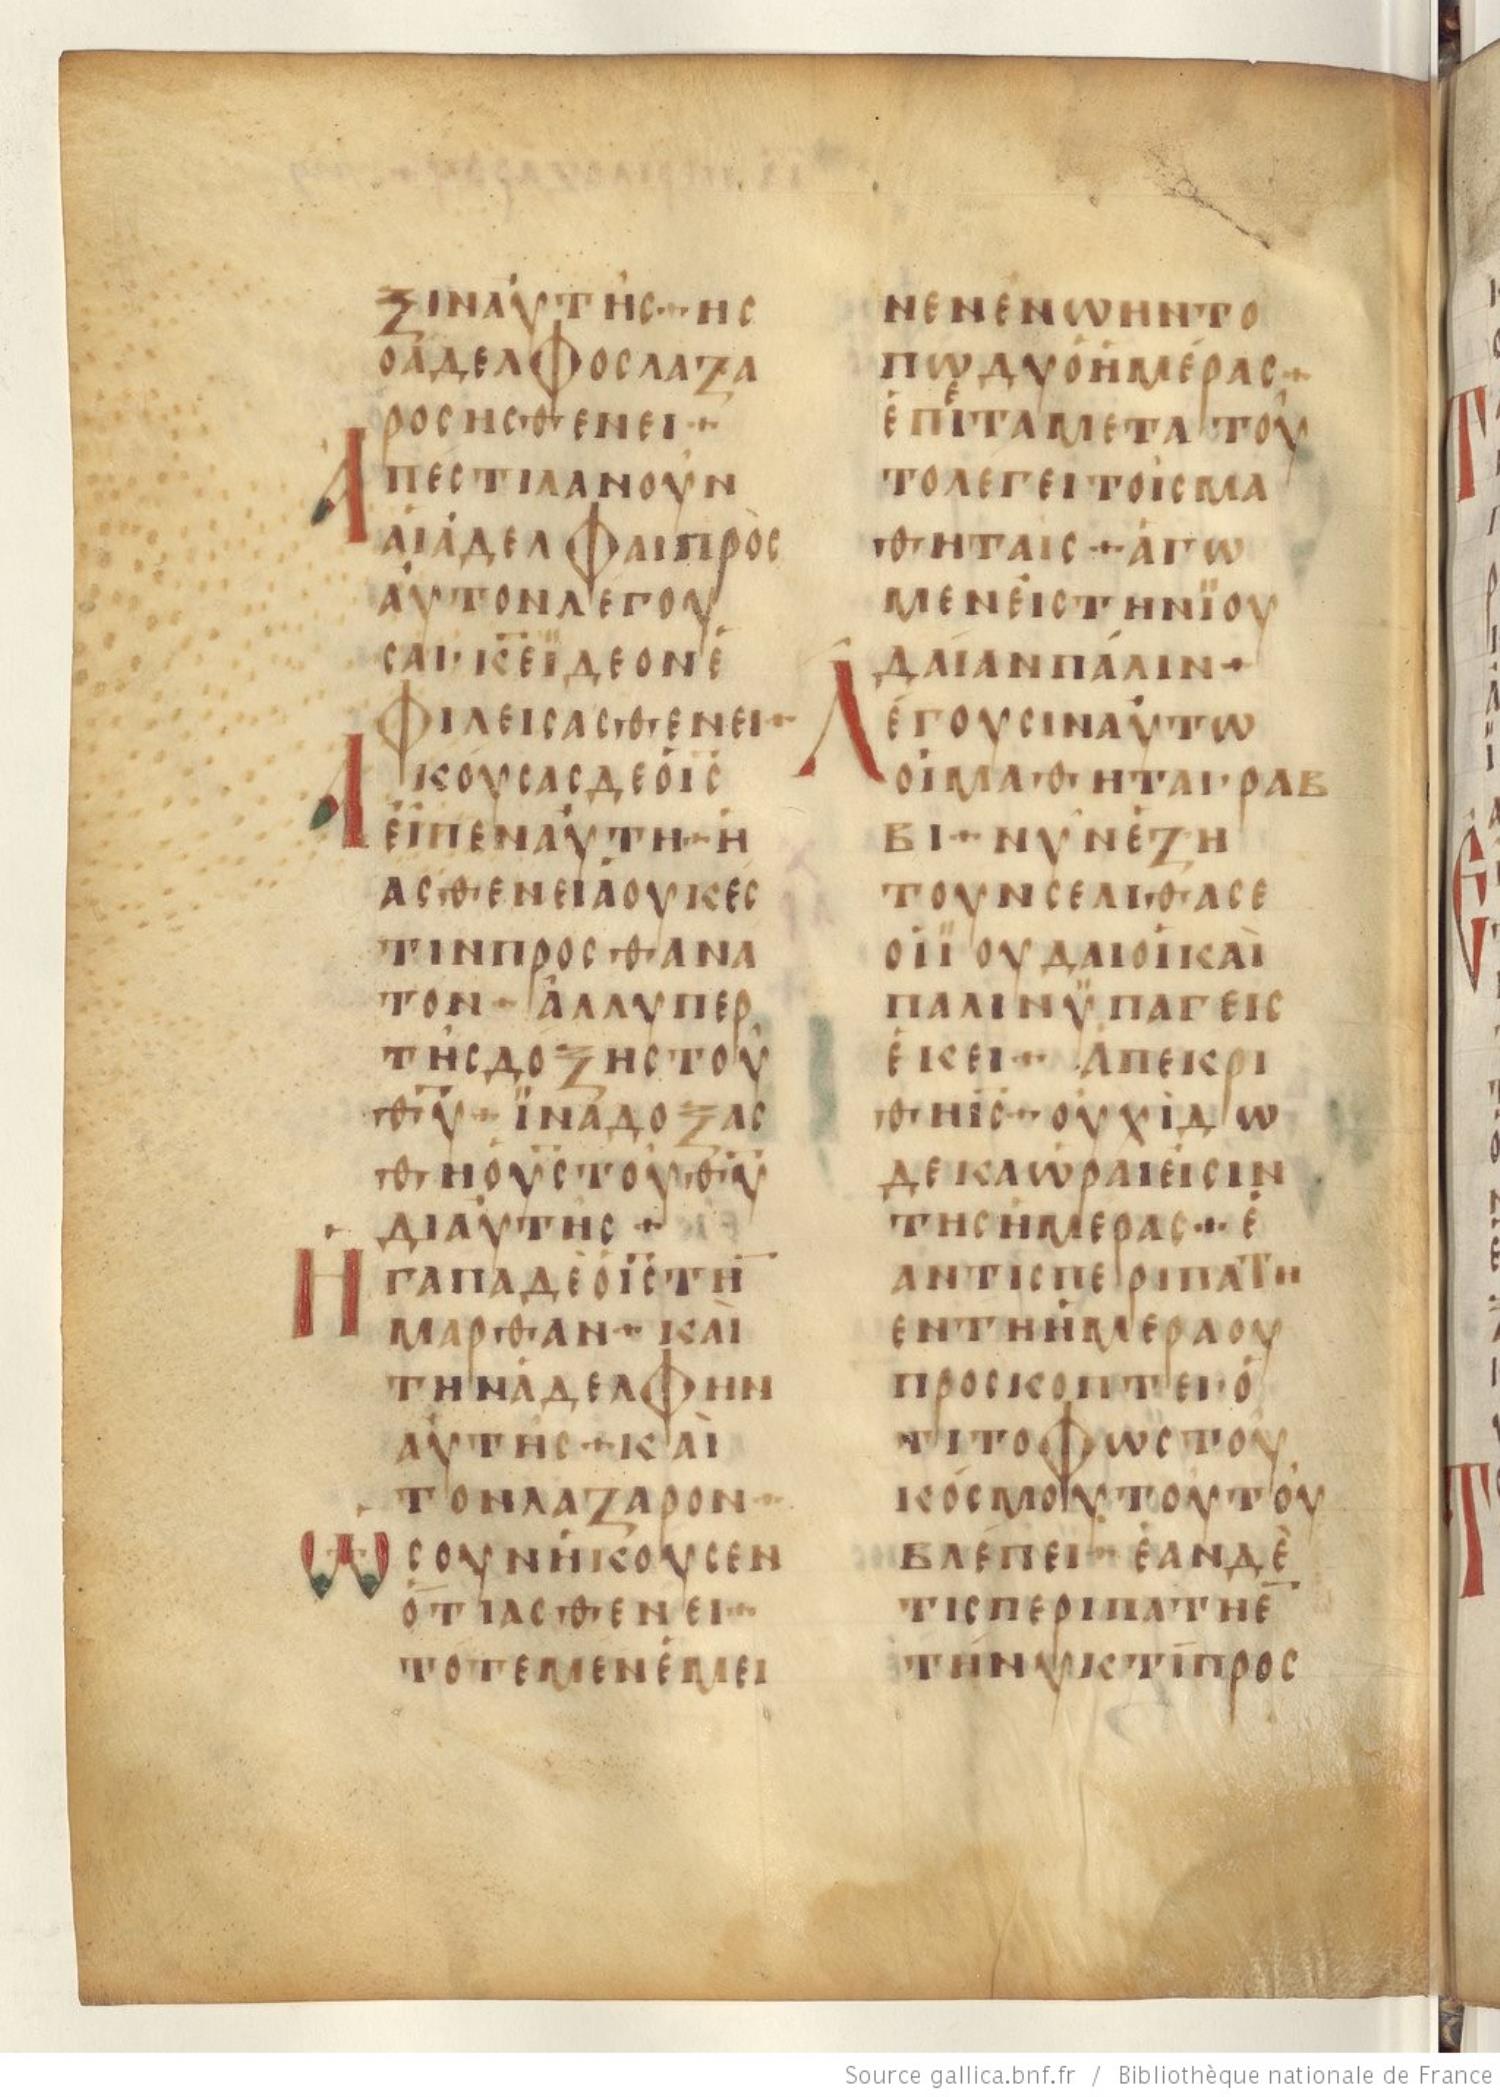 ξιναὐτῆς· ἧς
ὁἀδελφοςλαζα
ροςησθενει·
Απεςτιλανοὖν
αἱἀδελφαιπρὸς
αὐτονλέγου
σαι· κ̅ε̅ϊδεονἐ
φιλειςασθενει·
Ακούσαςδεὁι̅ς̅
εἶπεναὐτη· ἡ
ασθενειἀουκες
τινπροςθανα
τον· ἀλλυπερ
τῆςδοξηςτοῦ
θ̅υ̅· ϊναδοξας
θηὁυ̅ς̅τοὐθ̅υ̅
διαὐτῆς·
Ηγαπαδεὁι̅ς̅τη̅
μαρθαν· καὶ
τηνἀδελφην
αὐτῆς· καὶ
τονλαζαρον·
Ωςουνἠκουσεν
ὁτιασθενει·
τοτεμενἐμει
νενἐνωηντο
πωδυὁἡμέρας·
ἐπειταμετατοῦ
τολεγειτοῖςμα
θηταις· ἀγω
μενεἰςτηνϊου
δαίανπάλιν·
Λέγουσιναὐτω
οἱμαθηται· ραβ
βι· νυνἐζη
τουνσελιθασε
οἱϊουδαιοἱκαὶ
παλινϋπαγεις
ἐκει· Ἀπεκρι
θηι̅ς̅· οὐχὶδω
δεκαὡραιεἰσιν
τηςἡμερας· ἐ
αντιςπεριπατη
ἐντηἡμεραου
προςκοπτει· ὁ
τιτοφωςτοῦ
κόσμουτοὐτοὐ
βλέπει· ἐανδὲ
τιςπεριπατηε̅
τῆνυκτὶπρος
Source gallica.bnf.fr / Bibliothèque nationale de France